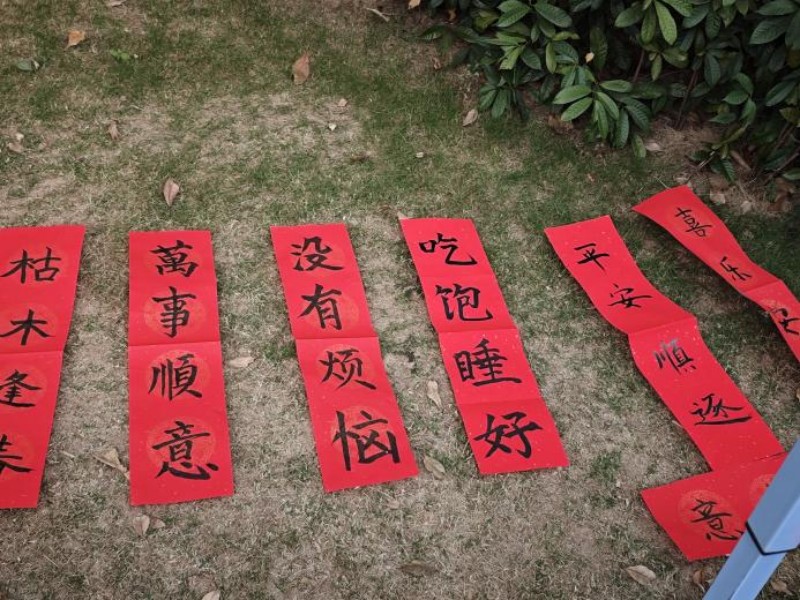 枯木逢春
萬事順意
没有烦恼
吃饱睡好
平安順逐意
喜乐安